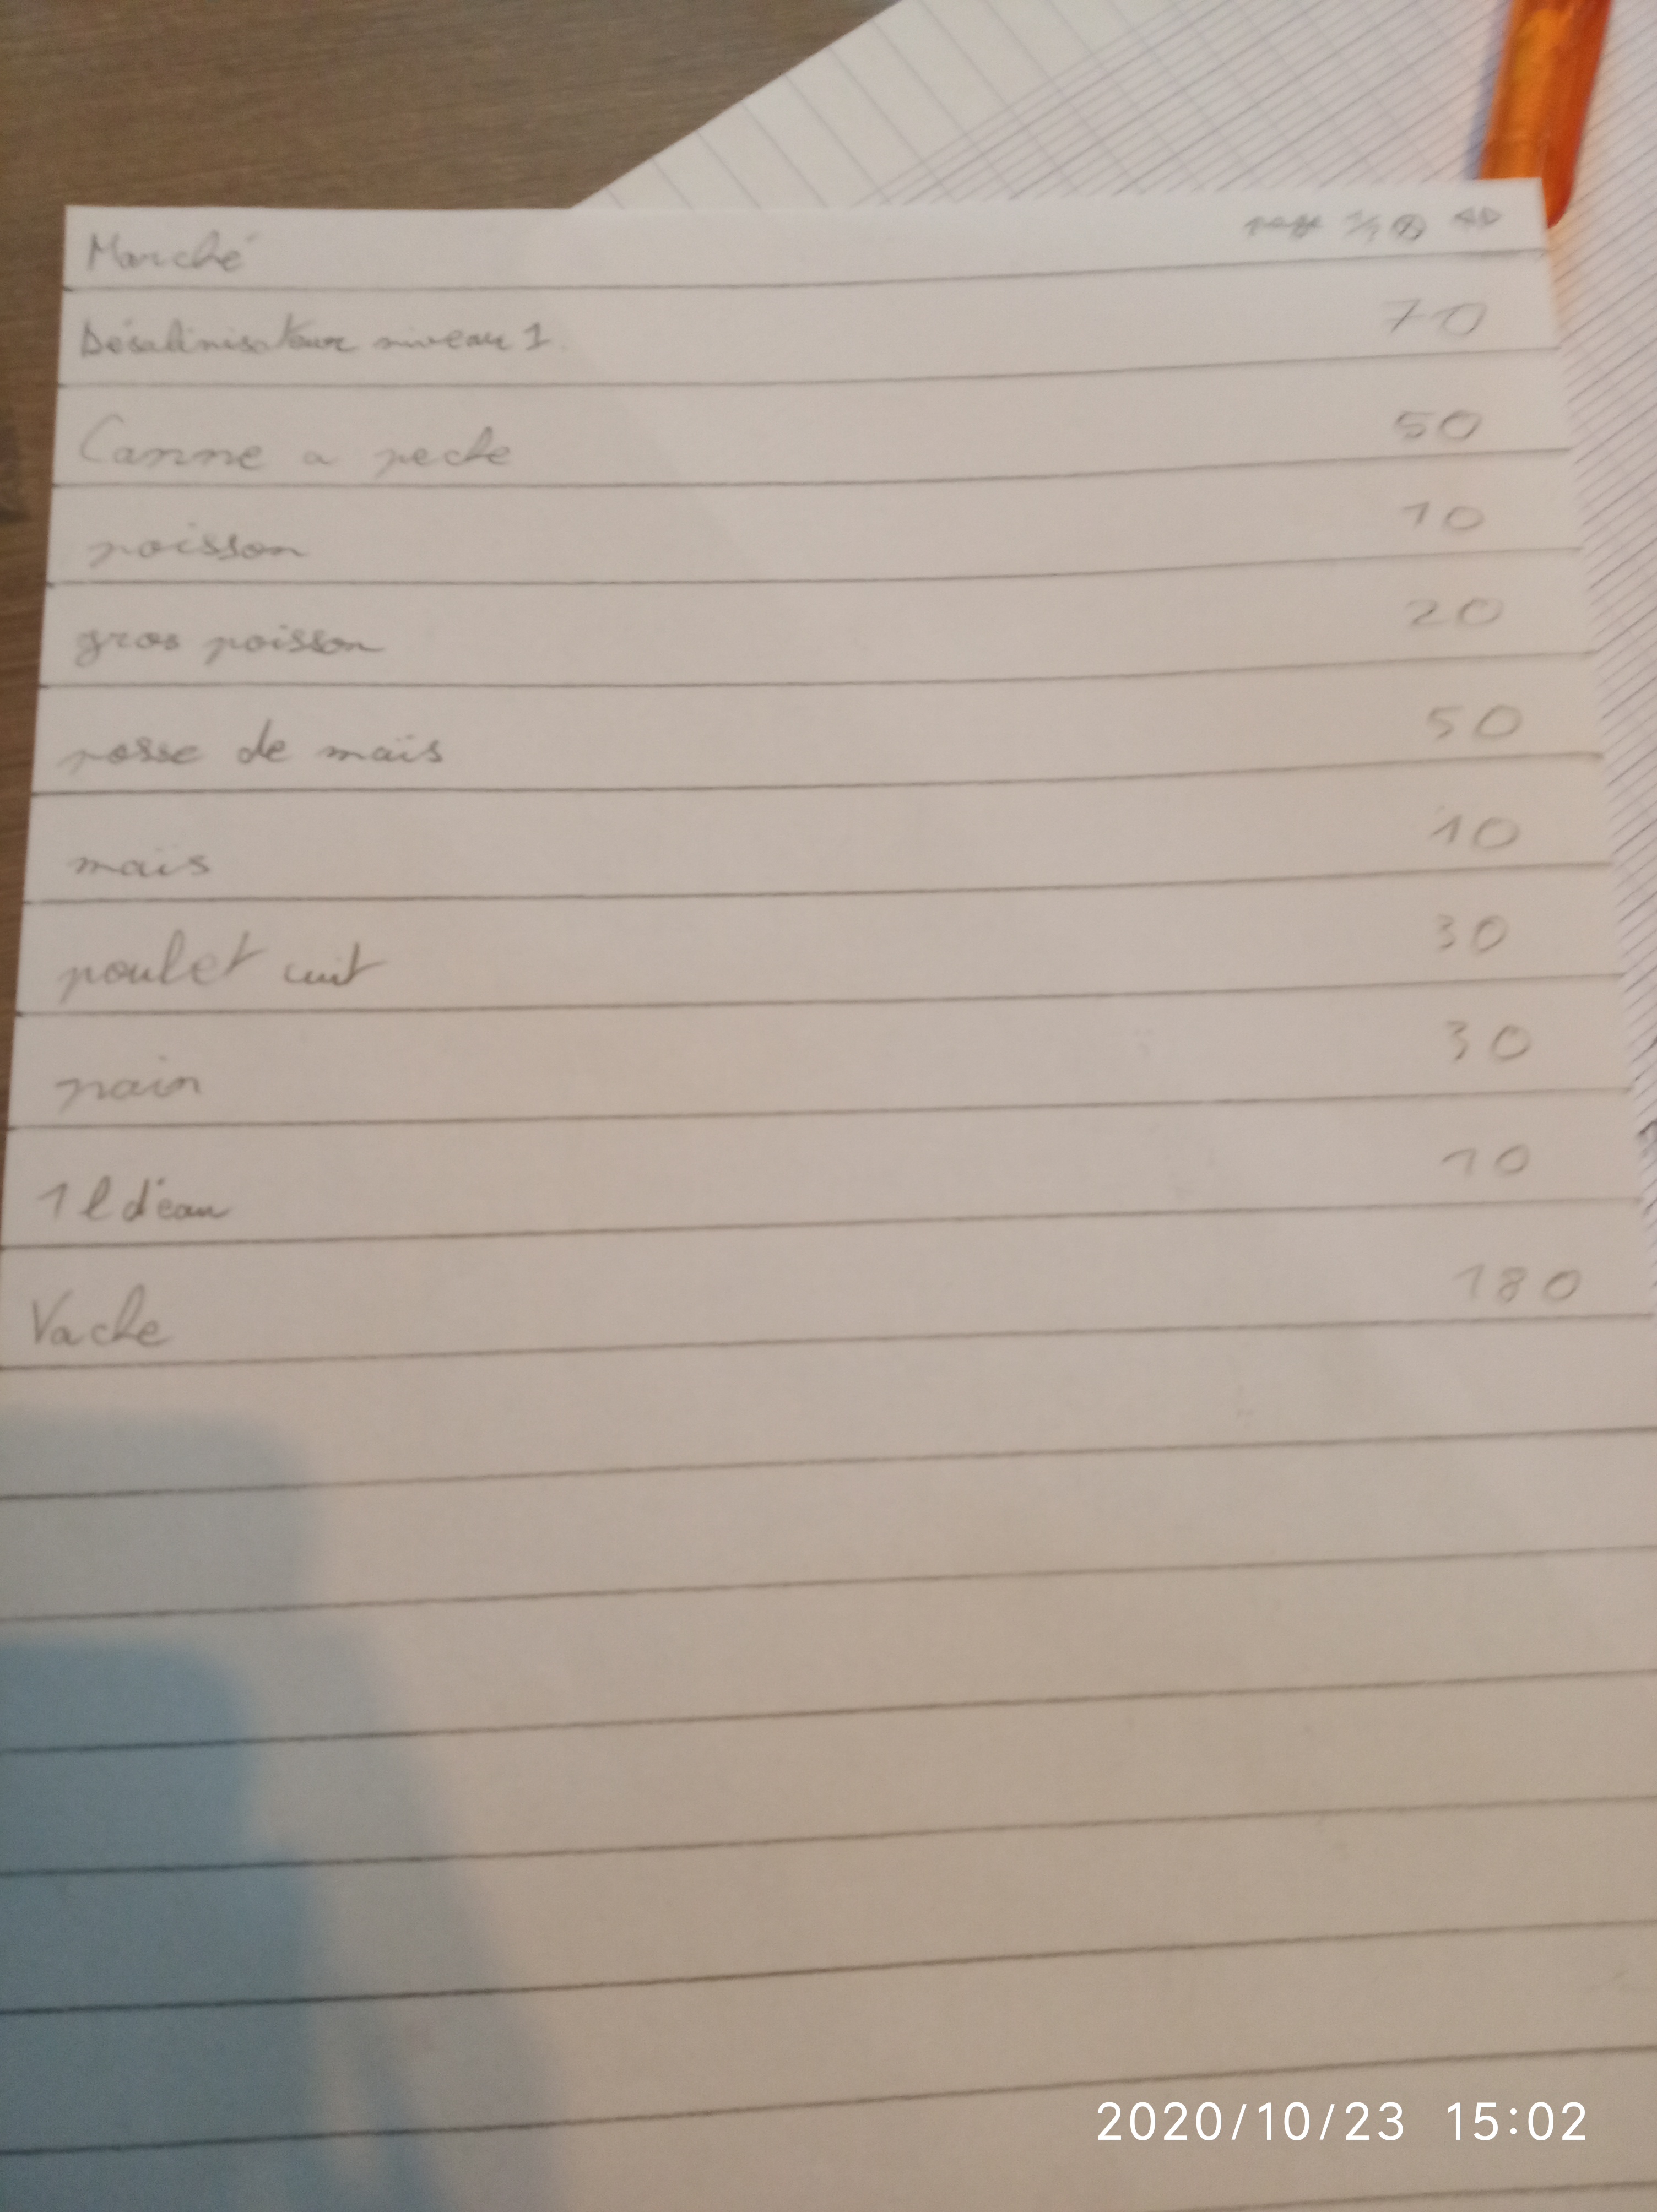 Marché page
Désalinisateur niveau 1 70
Canne a peche 50
poisson 10
gros poisson 20
posse de maïs 50
maïs 10
poulet cuit 30
pain 30
1 l d'eau 10
Vache 180
2020/10/23 15:02